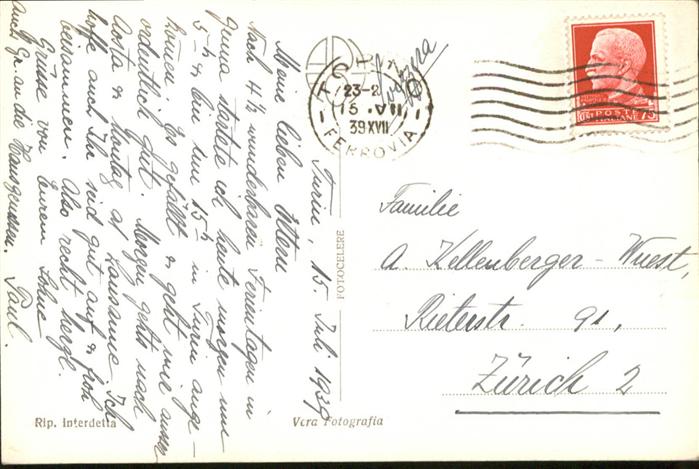 Turin, 15. Juli 1939
Meine lieben Eltern
Nach 4½ wunderbaren Ferientagen in
startete ich heute morgen um
5 h & bin nun 15 h in Turin ange-
kommen. Es gefällt & geht mir ausser-
ordentlich gut. Morgen gehts nach
Aosta & Montag a/ Lausanne. Ich
hoffe auch Ihr seid gut auf & froh
beisammen. Also recht herzl.
Grüsse von Eurem Sohne
Paul.
auch Gr. an die
TORINO
FERROVIA
23-24
15 VII
39 XVII
Svizzera
POSTE ITALIANE
75
Familie
A. Kellenberger-Wuest,
Rieterstr. 91,
Zürich 2
FOTOCELERE
Rip. Interdetta
Vera Fotografia